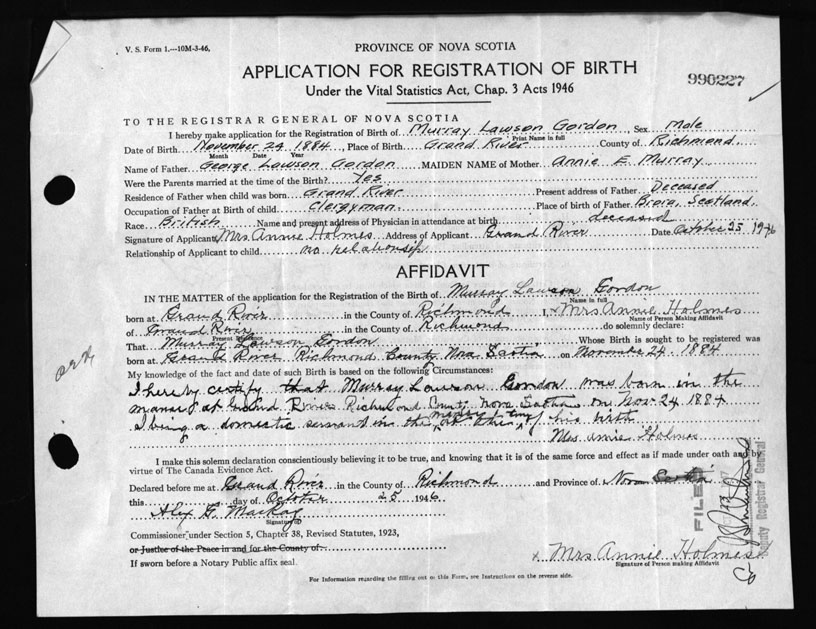 V. S. Form 1.—10M-3-46.
PROVINCE OF NOVA SCOTIA
APPLICATION FOR REGISTRATION OF BIRTH
990227
Under the Vital Statistics Act, Chap. 3 Acts 1946
TO THE REGISTRAR GENERAL OF NOVA SCOTIA
I hereby make application for the Registration of Birth of Murray Lawson Gordon, Sex Male
Print Name in full
Date of Birth November 24 1884, Place of Birth Grand River County of Richmond
Month Date Year
Name of Father George Lawson Gordon MAIDEN NAME of Mother Annie E Murray
Were the Parents married at the time of the Birth? Yes
Residence of Father when child was born Grand River Present address of Father Deceased
Occupation of Father at Birth of child Clergyman Place of birth of Father Brora, Scotland
Race British Name and present address of Physician in attendance at birth deceased
Signature of Applicant Mrs Annie Holmes Address of Applicant Grand River Date October 25 1946
Relationship of Applicant to child no relationship
AFFIDAVIT
IN THE MATTER of the application for the Registration of the Birth of Murray Lawson Gordon
Name in full
born at Grand River in the County of Richmond I, Mrs Annie Holmes
Name of Person Making Affidavit
of Grand River in the County of Richmond do solemnly declare:
Present Residence
That Murray Lawson Gordon Whose Birth is sought to be registered was
born at Grand River Richmond County Nova Scotia on November 24 1884
My knowledge of the fact and date of such Birth is based on the following Circumstances:
I hereby certify that Murray Lawson Gordon was born in the
manse at Grand River Richmond County Nova Scotia on Nov 24 1884
I being a domestic servant in the manse at the time of his birth
Mrs Annie Holmes
I make this solemn declaration conscientiously believing it to be true, and knowing that it is of the same force and effect as if made under oath and by
virtue of The Canada Evidence Act.
Declared before me at Grand River in the County of Richmond and Province of Nova Scotia
this day of October 25 1946
Alex G. Mackay
Signature
Commissioner under Section 5, Chapter 38, Revised Statutes, 1923,
or Justice of the Peace in and for the County of
If sworn before a Notary Public affix seal.
x Mrs Annie Holmes
Signature of Person making Affidavit
For Information regarding the filling out of this Form, see Instructions on the reverse side.
FILED
Deputy Registrar General